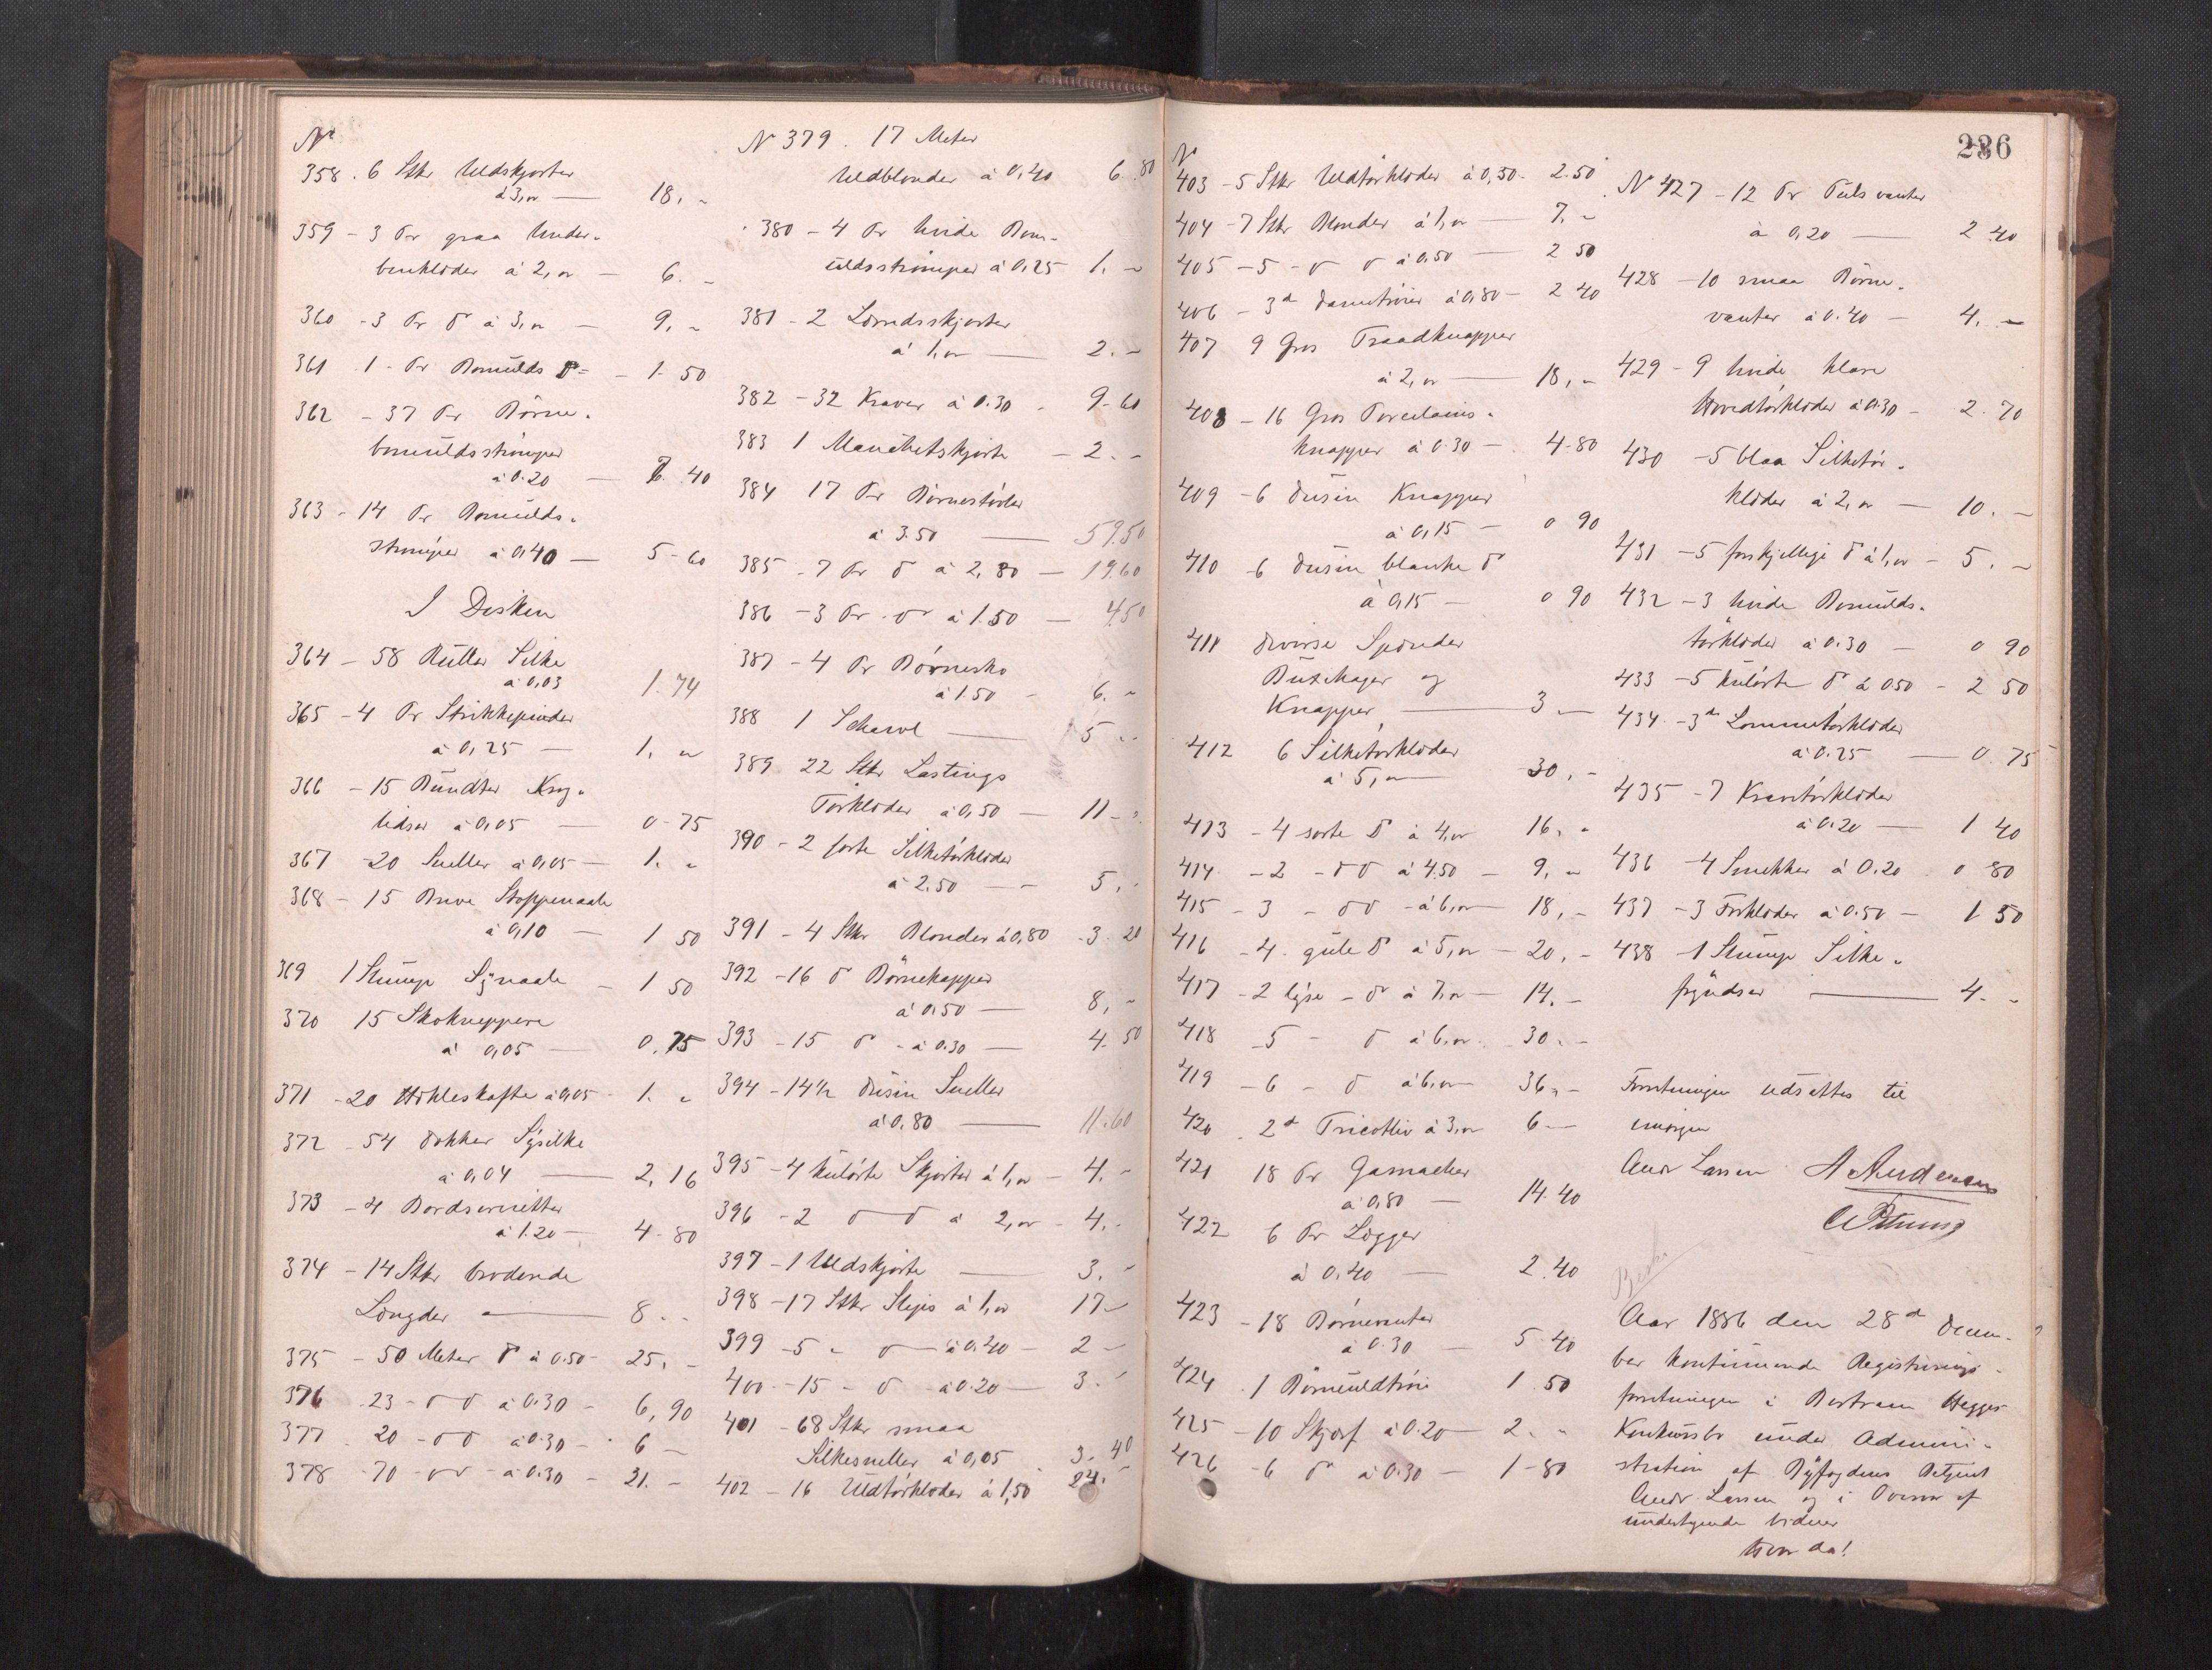 No
358. 6 Stkr Uldskjorter
à 3,00 — 18. "
359 - 3 Pr graa Under-
benklæder à 2,00 — 6. -
360 - 3 Pr do à 3,00 — 9, "
361 1 - Pr Bomulds do = - 1- 50
362 - 37 Pr Börne-
bomuldsströmper
à 0.20 — 7. 40
363 - 14 Pr Bomulds-
strømper à 0,40 — 5 - 60
I Disken
364 - 58 Ruller Silke
à 0,03 1. 74
365 - 4 Pr Strikkepinder
à 0,25 — 1, "
366 - 15 Bundter
lidser à 0,05 — 0 - 75
367 - 20 Sneller à 0,05 — 1. "
368 - 15 Breve Stoppenaale
à 0,10 — 1 50
369 1 Stump Synaale - 1 50
370 15 Skokneppere
à 0,05 — 0. 75
371 - 20 Hækleskafte à 0,05 - 1. "
372 - 54 Dokker Sysilke
à 0,04 — 2, 16
373 - 4 Bordservietter
à 1.20 — 4 - 80
374 - 14 Stkr broderede
Længder — 8 . -
375 - 50 Meter do à 0.50 - 25, -
376 . 23 - do do à 0.30 - 6, 90
377 . 20 - do do à 0.30 - 6 —
378 - 70 - do do - à 0.30 - 21. -
No 379. 17 Meter
Uldblonder à 0,40 6. 80
380 - 4 Pr hvide Bom-
uldsstrømper à 0,25 1. -
381 - 2 Lærredsskjorter
à 1,00 — 2. -
382 - 32 Kraver à 0.30 - 9- 60
383 1 Manchetskjorte - 2. -
384 17 Pr Börnestövler
à 3.50 — 59.50
385 - 7 Pr do à 2,80 — 19.60
386 - 3 Pr - do à 1.50 — 4.50
387 - 4 Pr Börnesko
à 1.50 - 6. "
388 1 Schawl — 5 "
389 22 Stkr Lastings
Tørklæder à 0,50 — 11 - "
390 - 2 sorte Silketörklæder
à 2.50 — 5, -
391 - 4 Stkr Blonder à 0,80 - 3. 20
392 - 16 do Börnekapper
à 0,50 — 8, -
393 - 15 do - à 0.30 — 4. 50
394 - 14½ Dusin Sneller
à 0,80 — 11.60
395 - 4 kulørte Skjorter à 1,00 - 4. -
396 - 2 do do à 2,00 - 4. -
397 - 1 Uldskjorte — 3. -
398 - 17 Stkr Slips à 1,00 17 -
399 - 5 - do - à 0.40 - 2 -
400 - 15 - do - à 0.20 — 3. -
401 - 68 Stkr smaa
Silkesneller à 0,05 3. 40
402 - 16 Uldtørklæder à 1,50 24. -
236
No
403 - 5 Stkr Uldtørklæder à 0,50 - 2.50
404 - 7 Stkr Blonder à 1,00 — 7. -
405 - 5 - do do à 0.50 — 2 50
406 - 3 do Dametröier à 0,80 - 2 40
407 9 Gros Traadknapper
à 2,00 — 18, -
408 - 16 Gros Porcelains-
knapper à 0.30 — 4-80
409 - 6 Dusin Knapper
à 0,15 — 0 90
410 - 6 Dusin blanke do
à 0,15 — 0 90
411 diverse Spænder
Buxehager og
Knapper — 3 -
412 6 Silketørklæder
à 5,00 — 30, -
413 - 4 sorte do à 4,00 16. -
414 - 2 - do do à 4.50 - 9, -
415 - 3 - do do - à 6,00 — 18, -
416 - 4 - gule do à 5,00 — 20, -
417 - 2 lyse - do à 7,00 — 14. -
418 - 5 - do à 6,00 - 30. -
419 - 6 - do à 6,00 — 36, -
420 . 2 do Tricotliv à 3,00 6 —
421 18 Pr Gamacher
à 0,80 — 14. 40
422 6 Pr Lægger
à 0,40 — 2.40
423 - 18 Børnevanter
à 0.30 — 5 40
424 - 1 Börneuldtröie 1 50
425 - 10 Skjærf à 0.20 - 2. "
426 - 6 do à 0.30 — 1 - 80
No 427 - 12 Pr Pulsvanter
à 0,20 — 2 40
428 - 10 smaa Börne-
vanter à 0.40 - 4. -
429 - 9 hvide klare
Hovedtørklæder à 0.30 - 2. 70
430 - 5 blaa Silketør-
klæder à 2,00 — 10. -
431 - 5 forskjellige do à 1,00 - 5. -
432 - 3 hvide Bomulds-
tørklæder à 0.30 — 0 90
433 - 5 kulørte do à 0.50 - 2 50
434 - 3 do Lommetørklæder
à 0.25 — 0. 75
435 - 7 Kravtørklæder
à 0.20 — 1 40
436 - 4 Smekker à 0.20 0 80
437 - 3 Forklæder à 0.50 — 1 50
438 - 1 Stump Silke-
fryndser — 4. -
Forretningen udsættes til
imorgen
Andr Larsen A Andersen
Aar 1886 den 28de Decem-
ber kontinuerede Registrerings-
forretningen i Bertram Hegges
Konkursbo under Admini-
stration af Byfogdens Betjent
Andr. Larsen og i Overvær af
undertegnede Vidner
Hvor da!